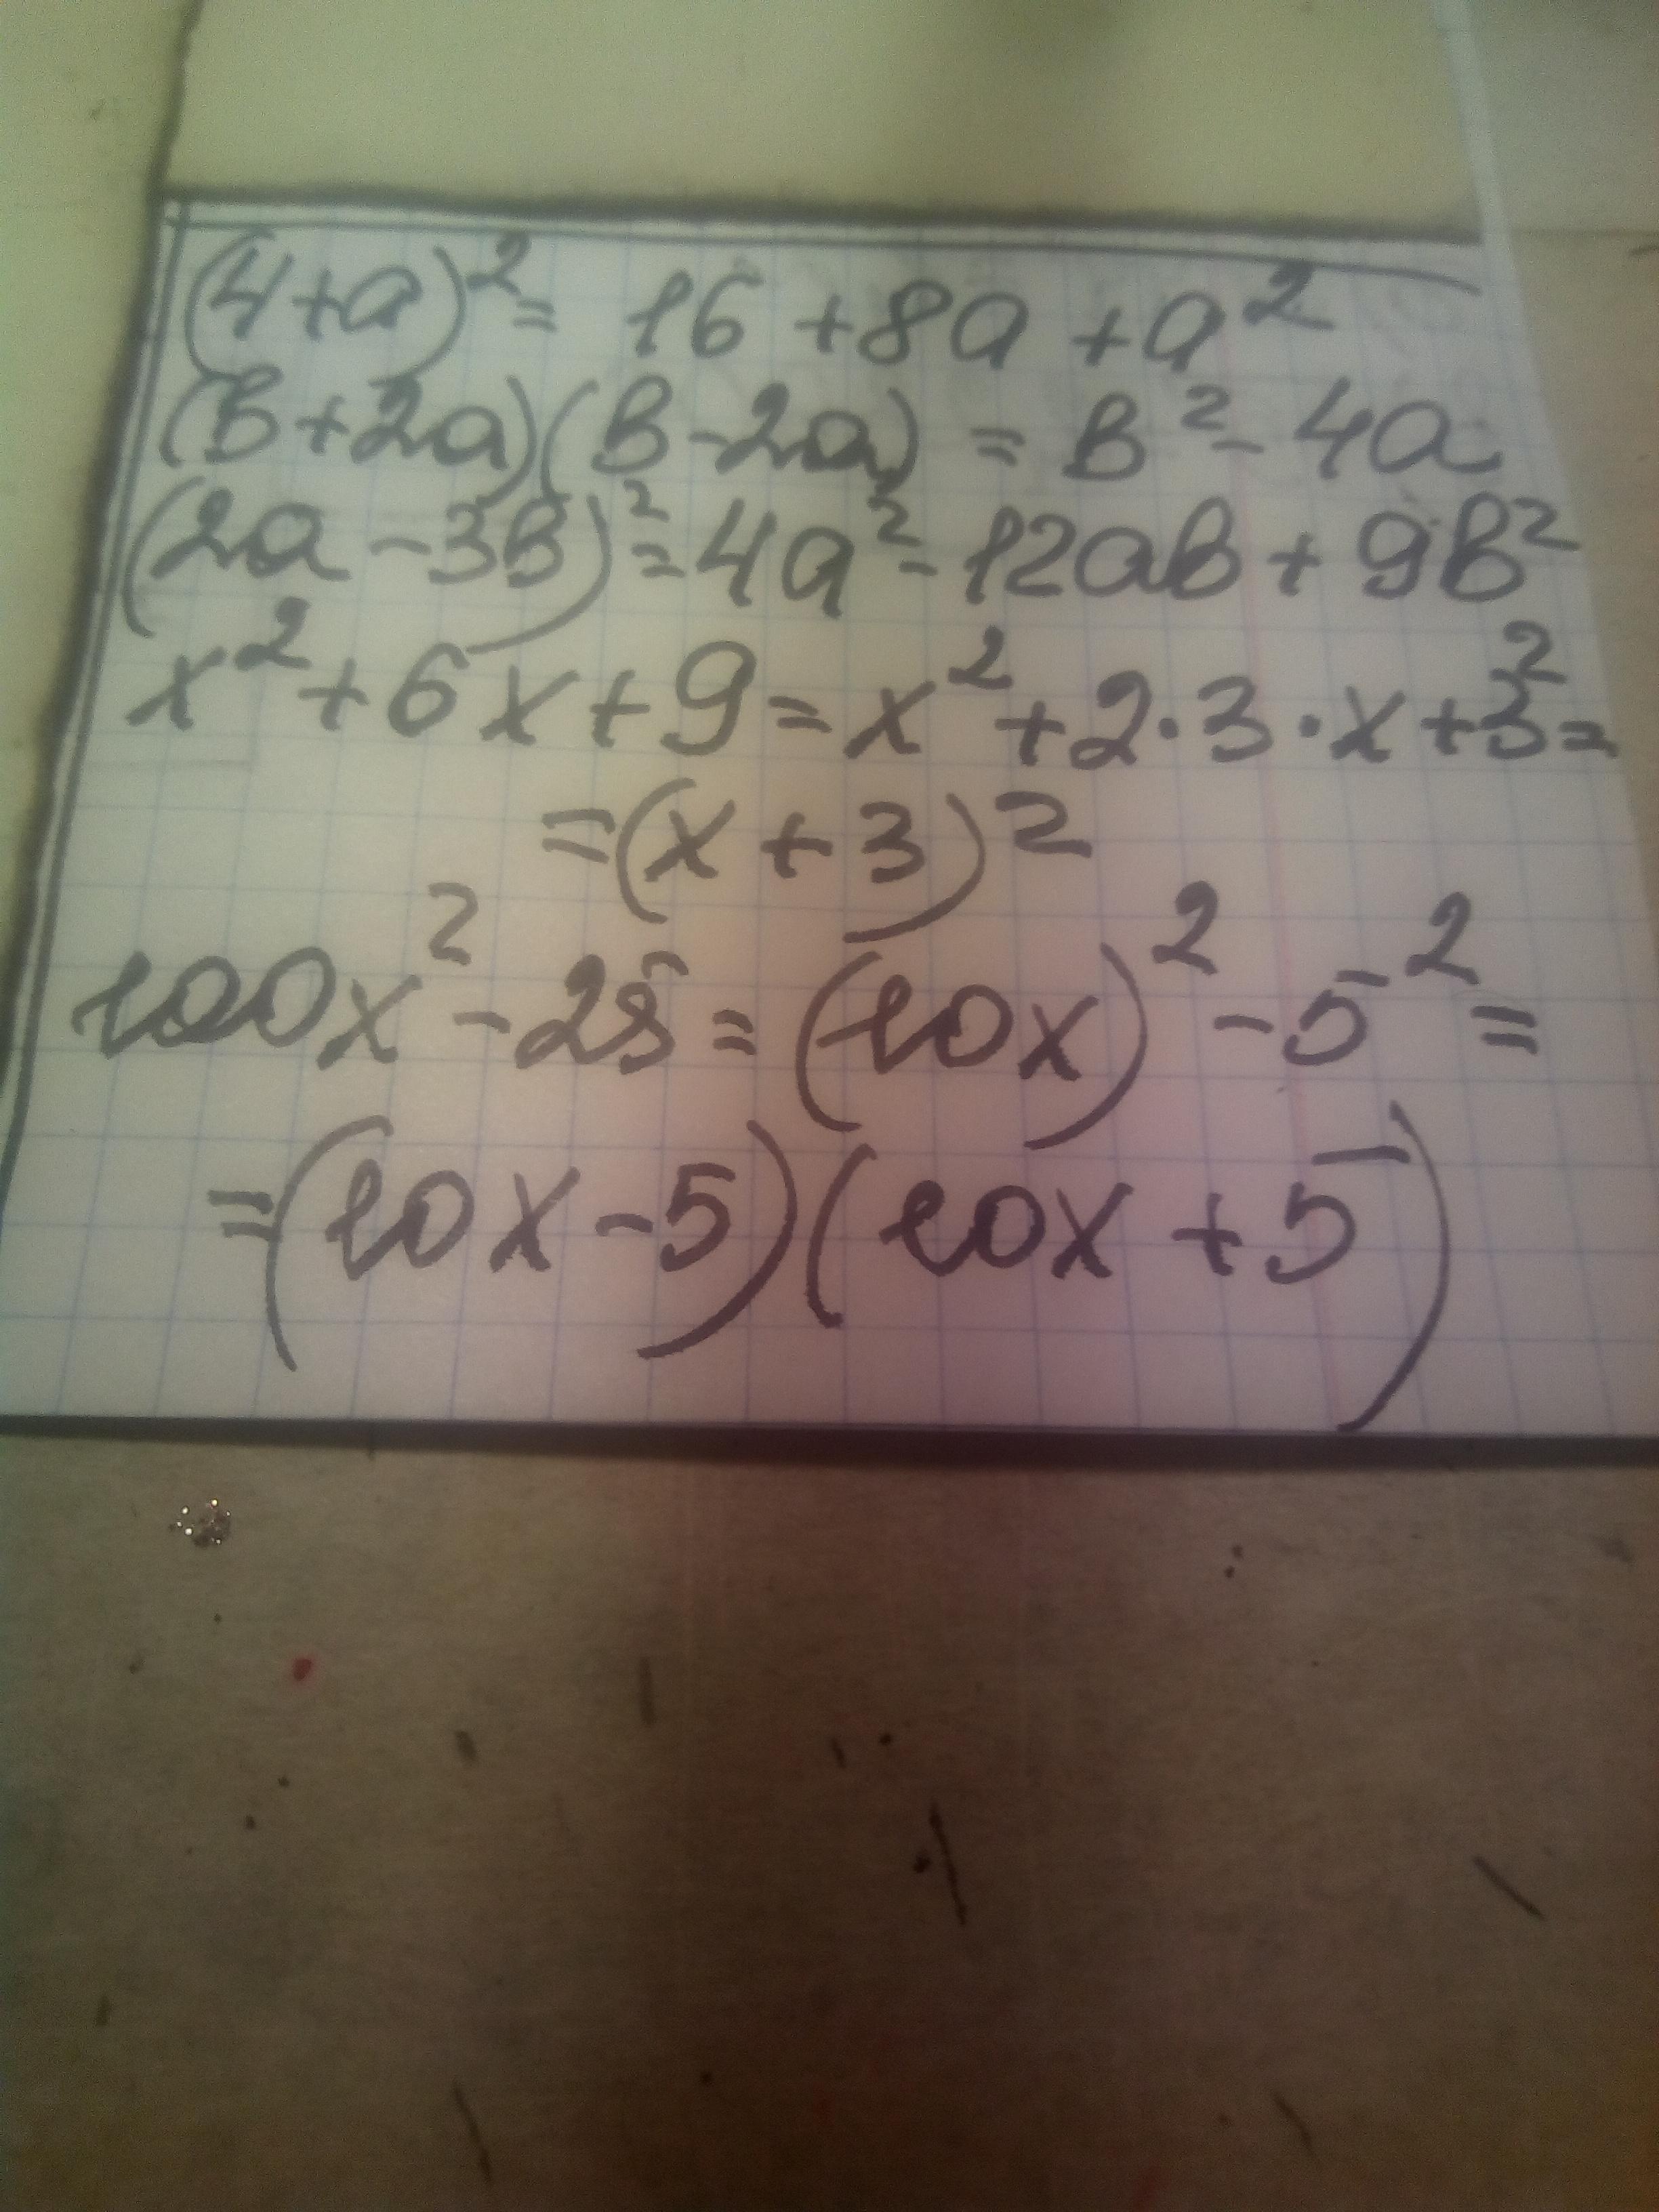 (4+a)²= 16+8a+a²
(в+2a)(в-2a) = в²-4a
(2a-3в)²=4a²-12aв+9в²
x²+6x+9=x²+2·3·x+3²=
=(x+3)²
100x²-25=(10x)²-5²=
=(10x-5)(10x+5)